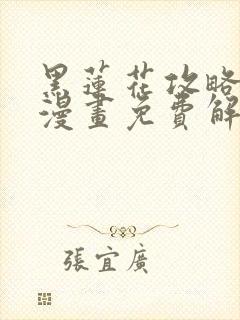 黑蓮花攻略
漫畫免費解
張宜廣